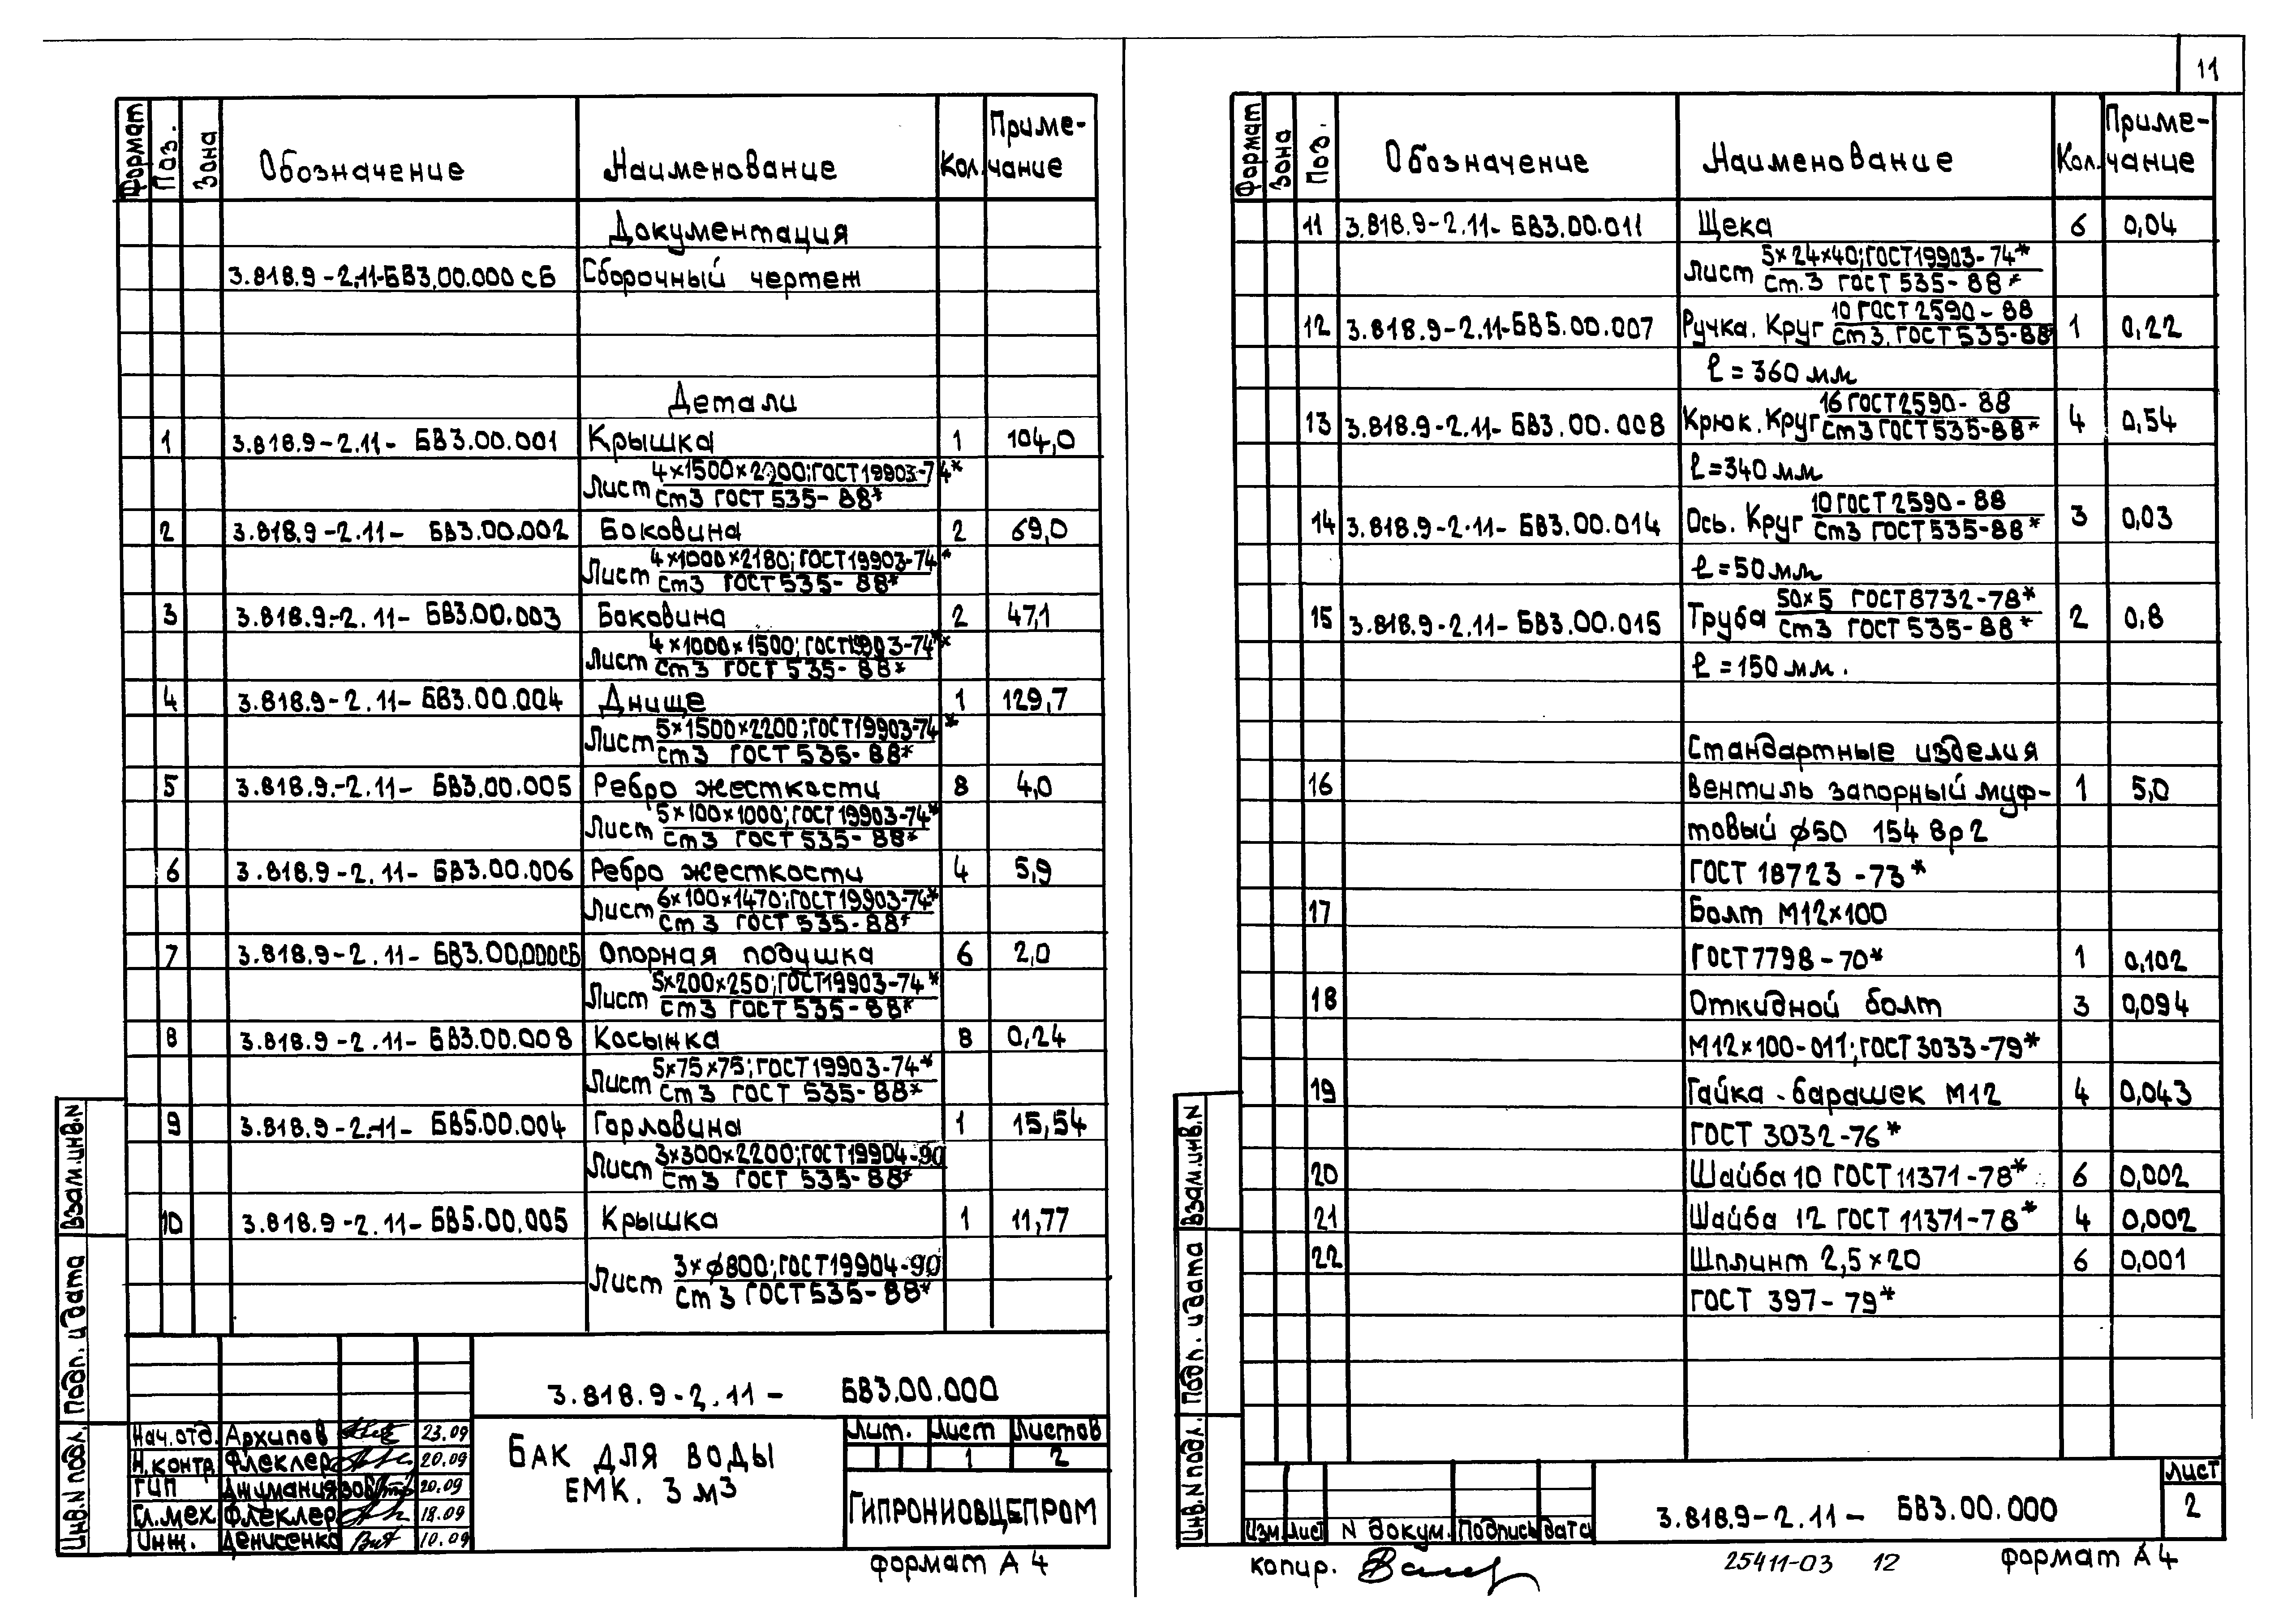 11
Формат Поз. Зона Обозначение Наименование Кол. Приме-
чание
Документация
3.818.9-2.11-БВ3.00.000 СБ Сборочный чертеж
Детали
1 3.818.9-2.11- БВ3.00.001 Крышка 1 104,0
Лист 4×1500×2200;ГОСТ19903-74*
ст3 ГОСТ 535-88*
2 3.818.9-2.11- БВ3.00.002 Боковина 2 69,0
Лист 4×1000×2180;ГОСТ19903-74*
ст3 ГОСТ 535-88*
3 3.818.9-2.11- БВ3.00.003 Боковина 2 47,1
Лист 4×1000×1500;ГОСТ19903-74*
ст3 ГОСТ 535-88*
4 3.818.9-2.11- БВ3.00.004 Днище 1 129,7
Лист 5×1500×2200;ГОСТ19903-74*
ст3 ГОСТ 535-88*
5 3.818.9-2.11- БВ3.00.005 Ребро жесткости 8 4,0
Лист 5×100×1000;ГОСТ19903-74*
ст3 ГОСТ 535-88*
6 3.818.9-2.11- БВ3.00.006 Ребро жесткости 4 5,9
Лист 6×100×1470;ГОСТ19903-74*
ст3 ГОСТ 535-88*
7 3.818.9-2.11- БВ3.00.000СБ Опорная подушка 6 2,0
Лист 5×200×250;ГОСТ19903-74*
ст3 ГОСТ 535-88*
8 3.818.9-2.11- БВ3.00.008 Косынка 8 0,24
Лист 5×75×75;ГОСТ19903-74*
ст3 ГОСТ 535-88*
9 3.818.9-2.11- БВ5.00.004 Горловина 1 15,54
Лист 3×300×2200;ГОСТ19904-90
ст3 ГОСТ 535-88*
10 3.818.9-2.11- БВ5.00.005 Крышка 1 11,77
Лист 3×ϕ800;ГОСТ19904-90
ст3 ГОСТ535-88*
3.818.9-2.11- БВ3.00.000
Нач.отд. Архипов 23.09
Н.контр Флеклер 20.09
ГИП Джумания зов 20.09
Гл.мех. Флеклер 18.09
Инж. Денисенко 10.09
Бак для воды
емк. 3 м³
Лит. Лист Листов
1 2
Гипрониовцепром
Взам.инв.N
Подп. и дата
Инв.N подл.
формат А4
Формат Зона Поз. Обозначение Наименование Кол. Приме-
чание
11 3.818.9-2.11- БВ3.00.011 Щека 6 0,04
Лист 5×24×40;ГОСТ19903-74*
ст.3 ГОСТ 535-88*
12 3.818.9-2.11-БВ5.00.007 Ручка. Круг 10 ГОСТ2590-88 1 0,22
ст3. ГОСТ535-88*
ℓ=360мм
13 3.818.9-2.11- БВ3.00.008 Крюк. Круг 16 ГОСТ2590-88 4 0,54
ст3 ГОСТ535-88*
ℓ=340мм
14 3.818.9-2.11- БВ3.00.014 Ось. Круг 10 ГОСТ2590-88 3 0,03
ст3 ГОСТ535-88*
ℓ=50мм
15 3.818.9-2.11- БВ3.00.015 Труба 50×5 ГОСТ8732-78* 2 0,8
ст3 ГОСТ 535-88*
ℓ=150мм.
Стандартные изделия
16 Вентиль запорный муф- 1 5,0
товый ϕ50 15ч 8р2
ГОСТ 18723-73*
17 Болт М12×100
ГОСТ7798-70* 1 0,102
18 Откидной болт 3 0,094
М12×100-011;ГОСТ3033-79*
19 Гайка-барашек М12 4 0,043
ГОСТ 3032-76*
20 Шайба 10 ГОСТ11371-78* 6 0,002
21 Шайба 12 ГОСТ 11371-78* 4 0,002
22 Шплинт 2,5×20 6 0,001
ГОСТ 397-79*
Взам.инв.N
Подп. и дата
Инв.N подл.
Изм. Лист N докум. Подпись дата
3.818.9-2.11- БВ3.00.000
Лист
2
копир.
25411-03 12
формат А4